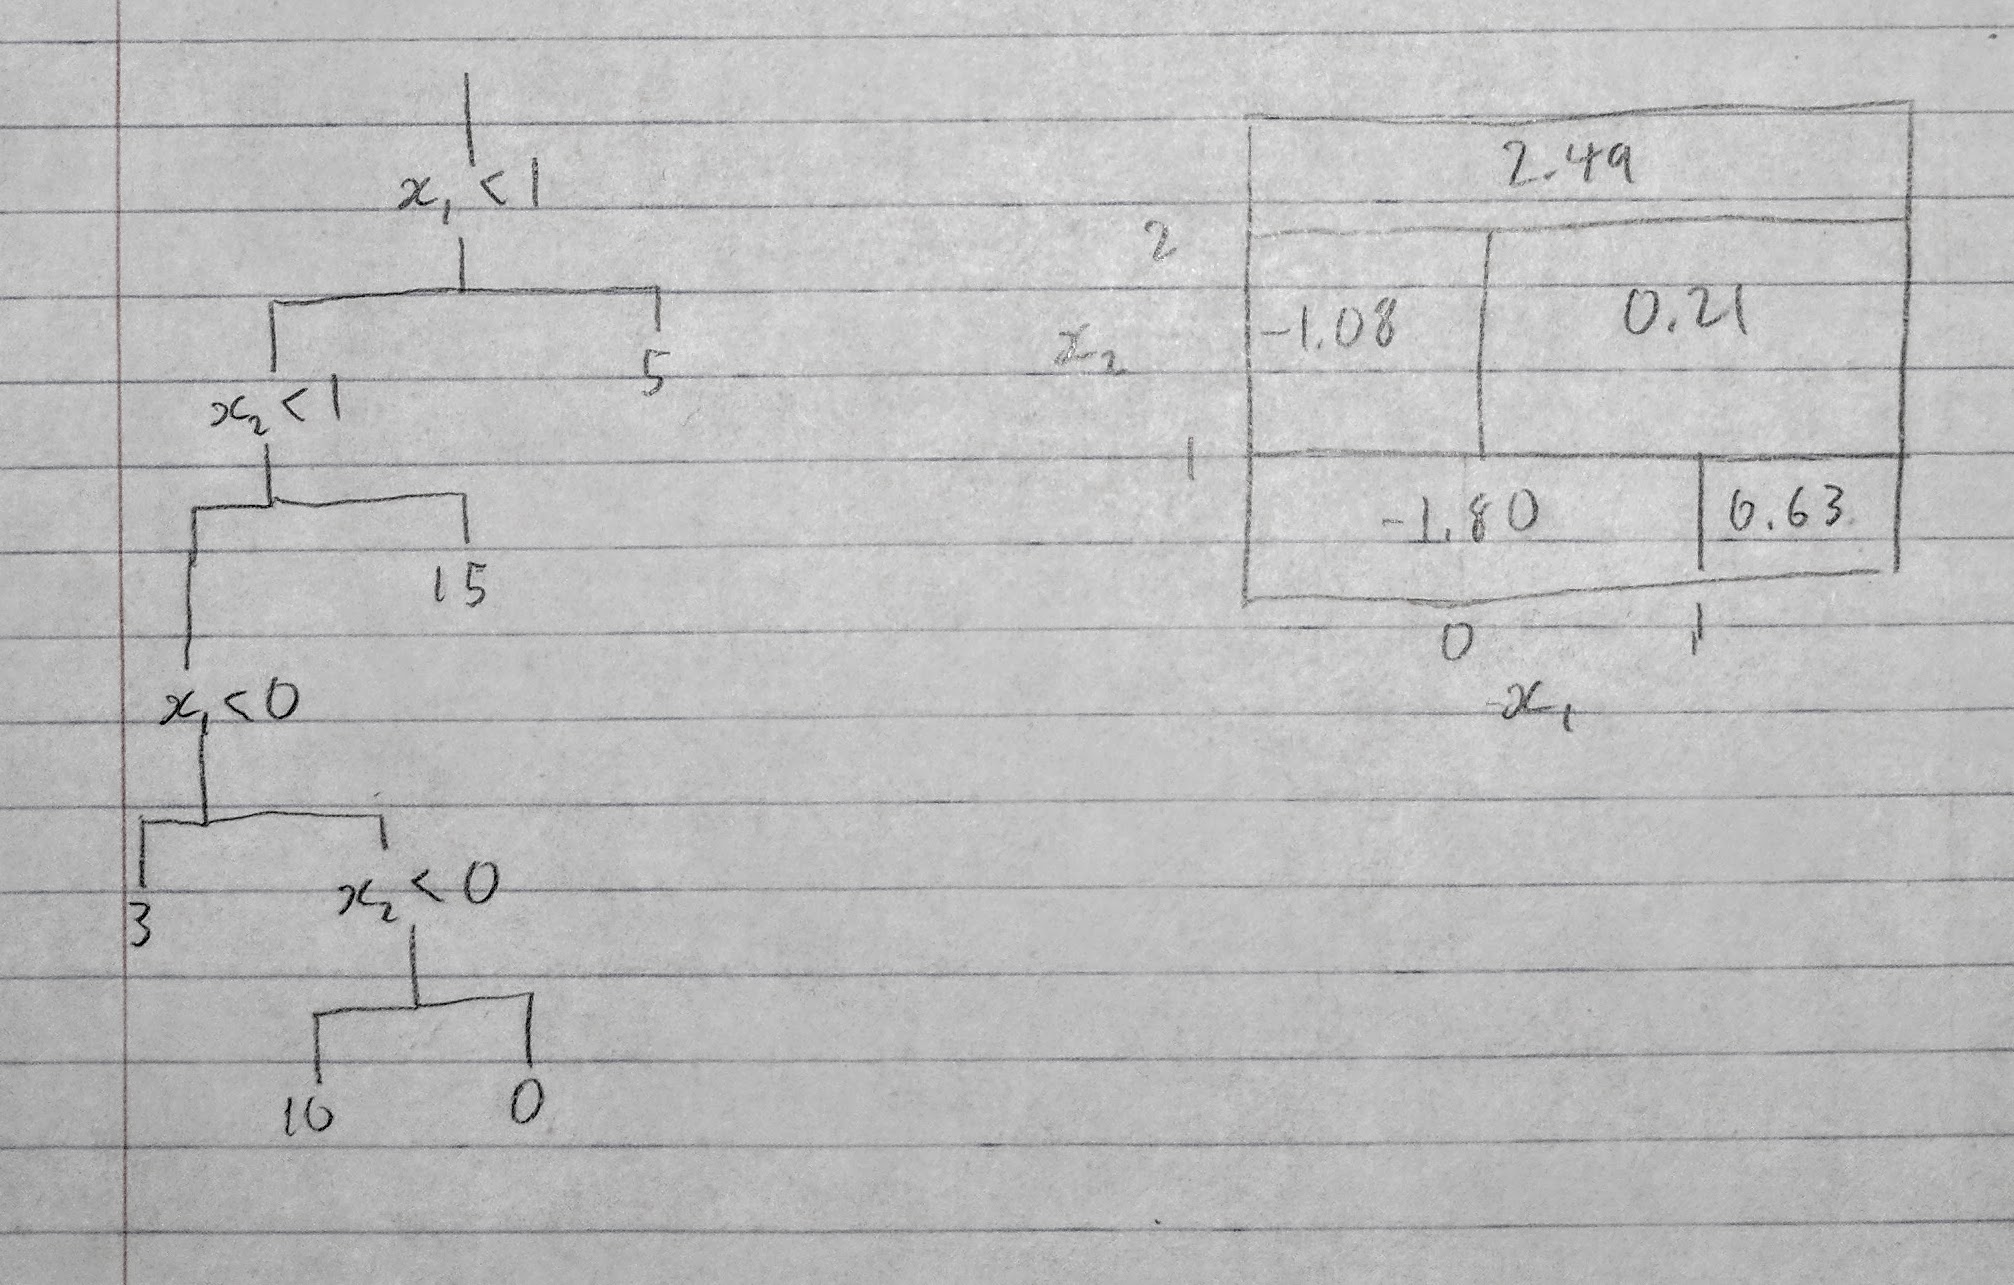 x₁ < 1
5
x₂ < 1
15
x₁ < 0
3
x₂ < 0
10
0
2.49
2
-1.08
0.21
x₂
1
-1.80
0.63
0
1
x₁